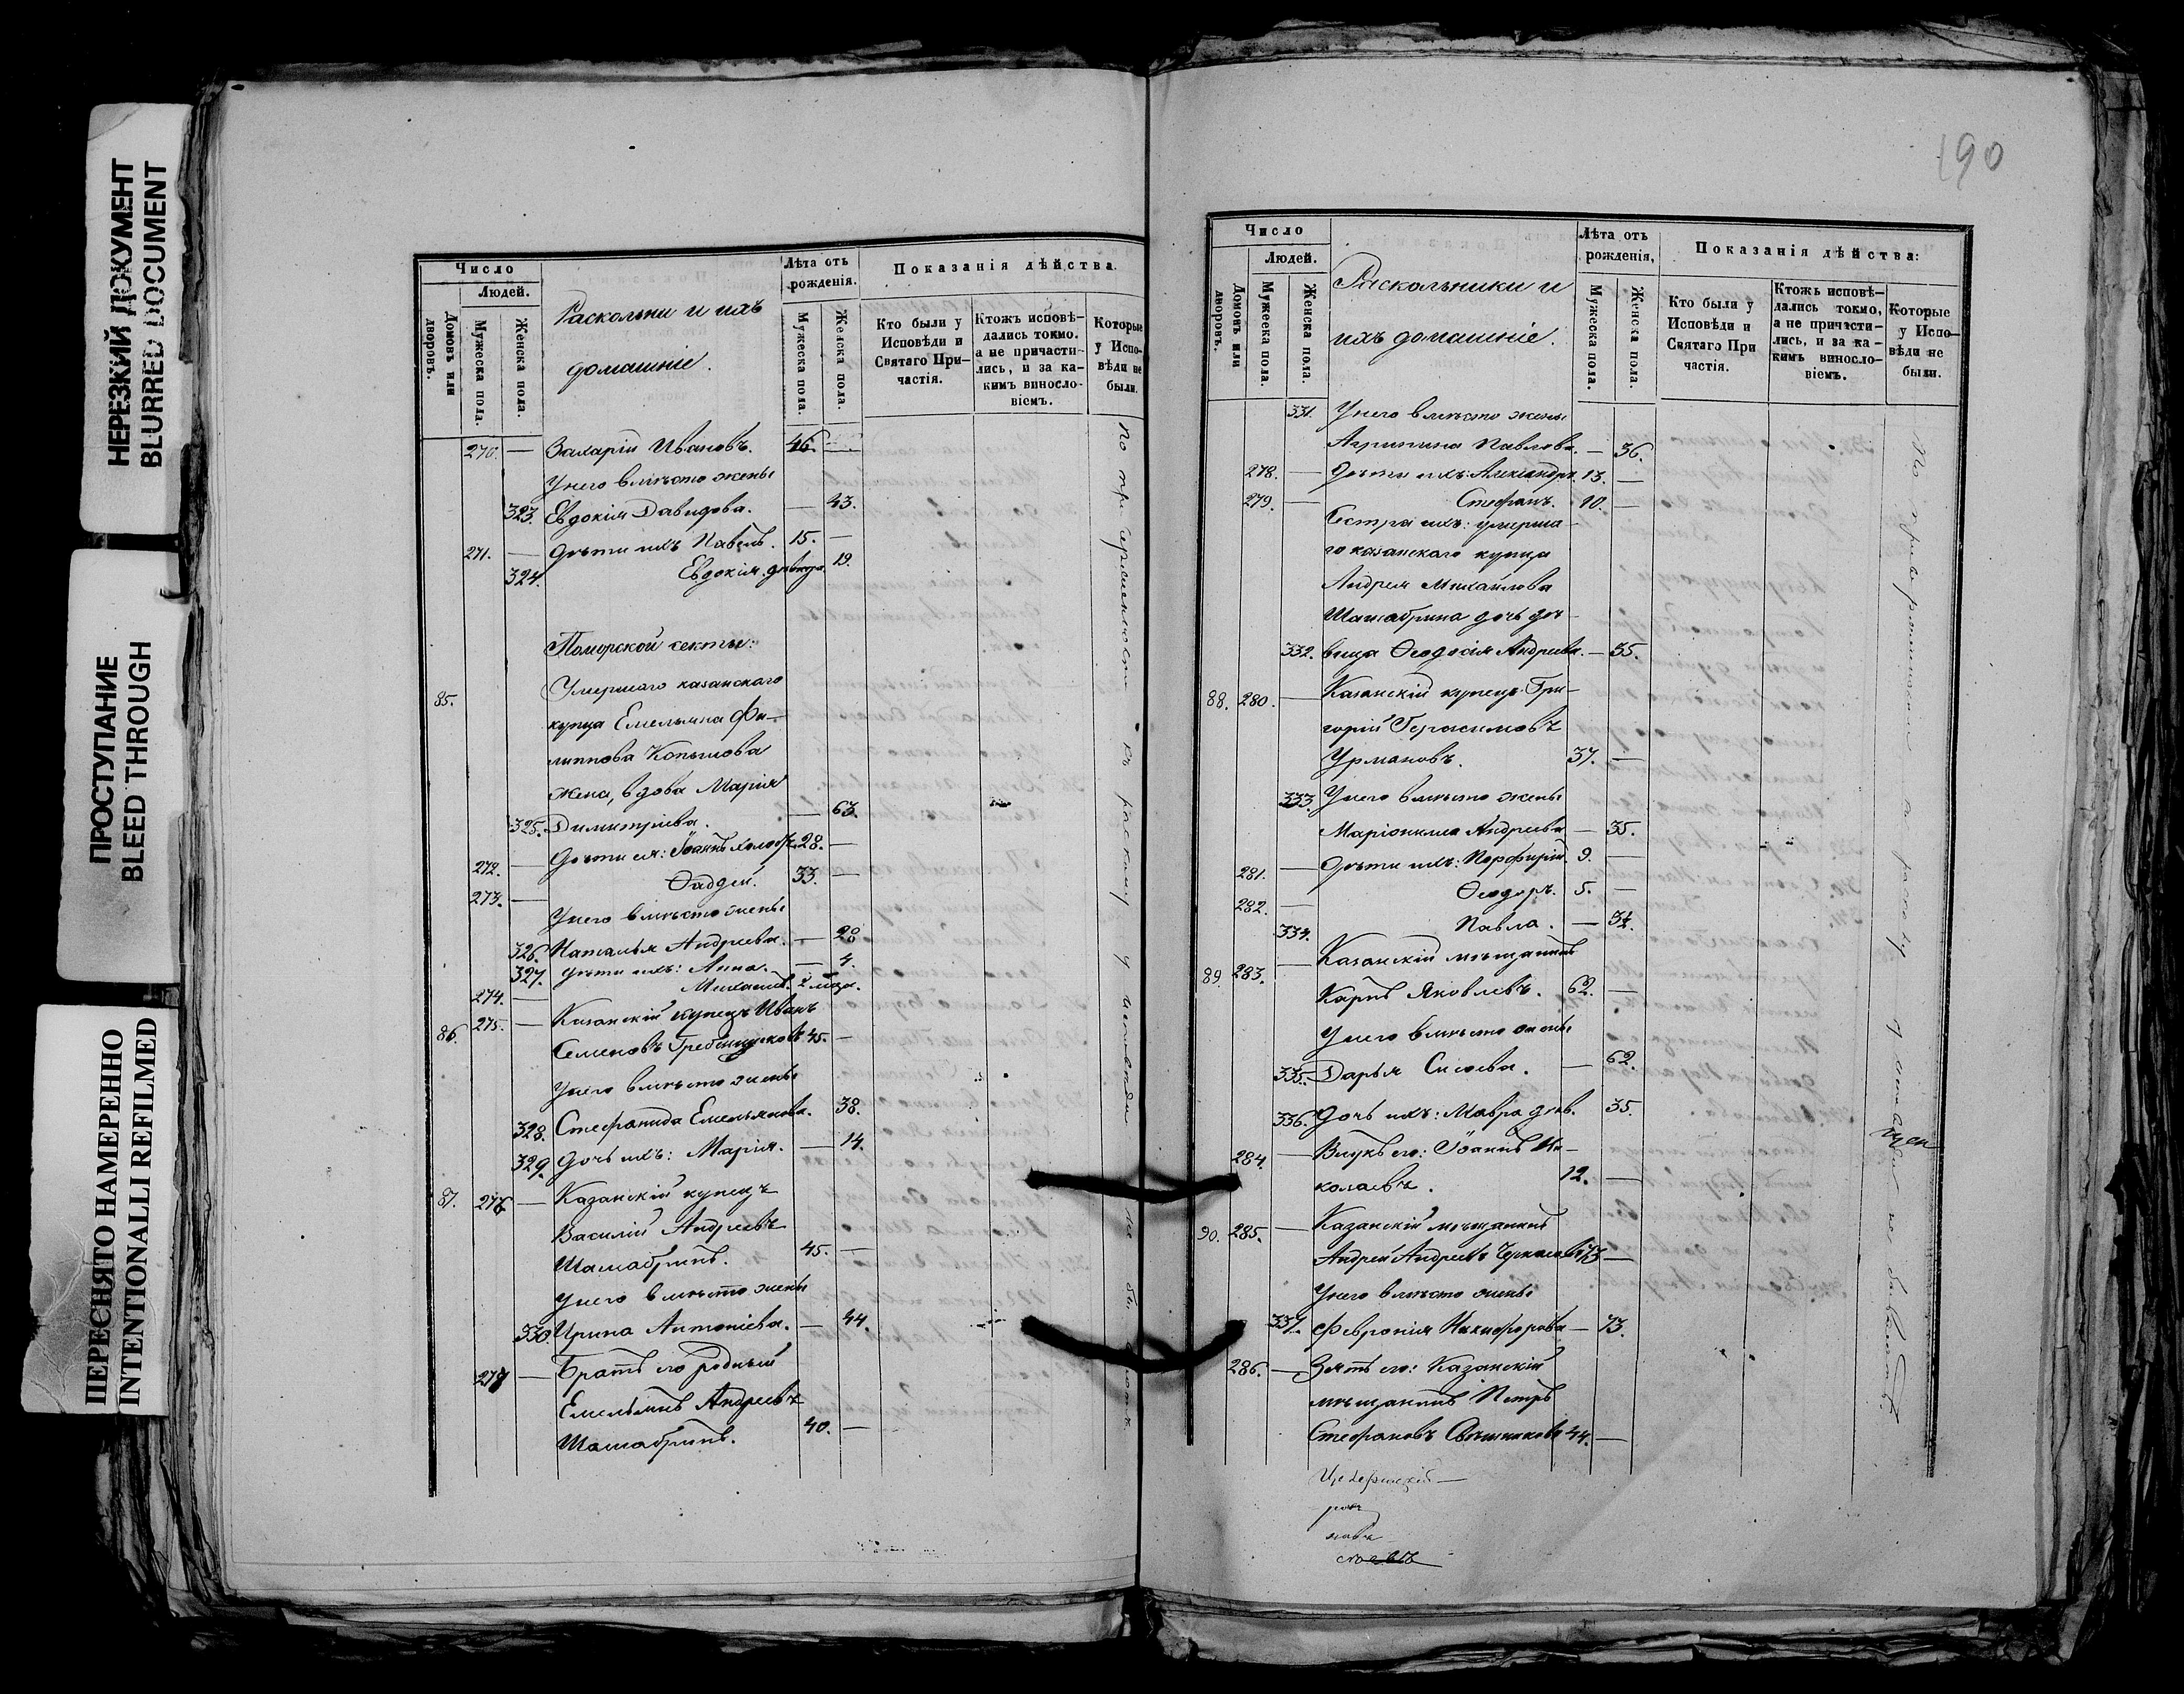 НЕРЕЗКИЙ ДОКУМЕНТ
BLURRED DOCUMENT
ПРОСТУПАНИЕ
BLEED THROUGH
ПЕРЕСНЯТО НАМЕРЕННО
INTENTIONALLI REFILMED
Число
Людей.
Домовъ или дворовъ.
Мужеска пола.
Женска пола.
Раскольни и ихъ
домашніе.
Лѣта отъ рожденія.
Мужеска пола.
Женска пола.
Показанія дѣйства.
Кто были у Исповѣди и Святаго При-частія.
Ктожъ исповѣ-дались токмо. а не причасти-лись, и за ка-кимъ винословіемъ.
Которые у Испо-вѣди не были.
270. — Захарій Ивановъ. 46. —
У него вмѣсто жены
323. Евдокія Давидова. — 43.
271. — Дѣти ихъ Павелъ. 15. —
324. Евдокія дѣвица. 19.
Поморской секты:
85. Умершаго казанскаго
купца Емельяна Фи-
липпова Копылова
жена, вдова Марія
325. Димитріева. — 63.
272. — Дѣти ея: Іоаннъ холостъ. 28. —
273. — Ѳаддей. 33. —
У него вмѣсто жены
326. Наталья Андреева. — 28
327. Дѣти ихъ: Анна. — 4.
274. — Михаилъ. 2 мѣся.
86. 275. — Казанскій купецъ Иванъ
Семеновъ Гребенщиковъ 45. —
У него вмѣсто жены
328. Стефанида Емельянова. 38.
329. Дочь ихъ: Марія. — 14.
87. 276 — Казанскій купецъ
Василій Андреевъ
Шамабринъ. 45. —
У него вмѣсто жены
330 Ирина Антоніева. — 44.
277 — Братъ его родный
Емельянъ Андреевъ
Шамабринъ. 40. —
По при къ раскину у исповѣди не были
190
Число
Людей.
Домовъ или дворовъ.
Мужеска пола.
Женска пола.
Раскольники и
ихъ домашніе.
Лѣта отъ рожденія,
Мужеска пола.
Женска пола.
Показанія дѣйства:
Кто были у Исповѣди и Святаго При частія.
Ктожъ исповѣ-дались токмо, а не причасти-лись, и за ка-кимъ винословіемъ.
Которые у Испо-вѣди не были.
331. У него вмѣсто жены
Агрипина Павлова. — 36.
278. — Дѣти ихъ: Александръ. 13. —
279. — Стефанъ. 10. —
Сестра ихъ: умерша-
го казанскаго купца
Андрея Михайлова
Шамабрина дочь дѣ-
332. вица Ѳеодосія Андреева. — 35.
88. 280. — Казанскій купецъ Гри-
горій Герасимовъ
Урмановъ. 37. —
333. У него вмѣсто жены
Маріонилла Андреева — 35.
281. — Дѣти ихъ: Порфирій. 9. —
282. — Ѳеодоръ. 5. —
334. Павла. —
89. 283. — Казанскій мѣщанинъ
Карпъ Яковлевъ. 62. —
У него вмѣсто жены
335. Дарья Сысоева. — 62.
336. Дочь ихъ: Мавра дѣв. 35.
284. — Внукъ его: Іоаннъ Ни-
колаевъ. 12. —
90. 285. — Казанскій мѣщанинъ
Андрей Андреевъ 73 —
У него вмѣсто жены
337. Февронія Никифорова — 73.
286. — Зять его: Казанскій
мѣщанинъ Петръ
Стефановъ 44. —